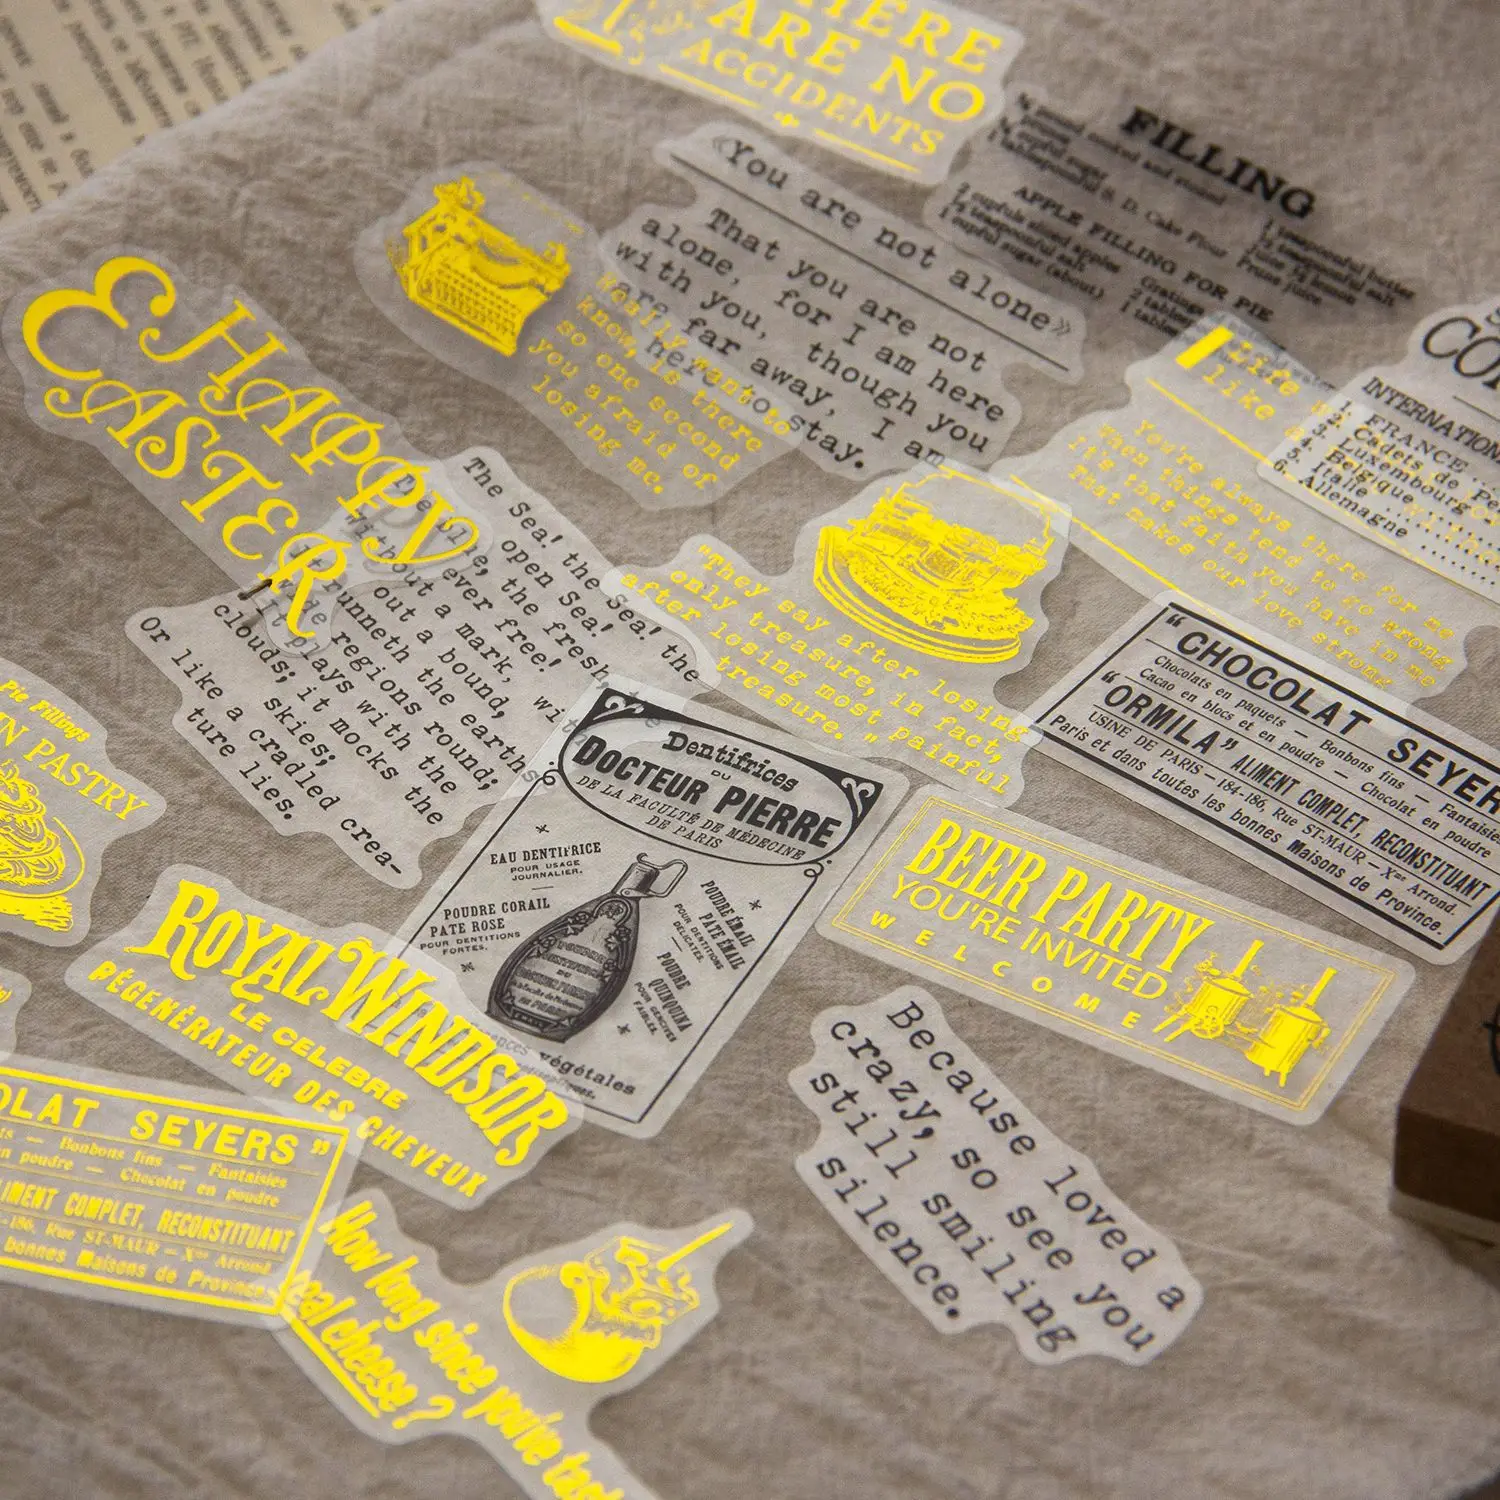 HERE
ARE NO
ACCIDENTS
FILLING
APPLE FILLING FOR PIE
«You are not alone»
That you are not
alone, for I am here
with you, though you
are far away, I am
here to stay.
really want to
know, is there
so one second
you afraid of
losing me.
HAPPY
EASTER
The Sea! the Sea! the
open Sea!
The blue, the fresh, the
ever free!
Without a mark, with
out a bound,
It runneth the earths
wide regions round;
It plays with the
clouds; it mocks the
skies;
Or like a cradled crea-
ture lies.
"They say after losing
only treasure, in fact,
after losing most painful
treasure. "
Life
like
You're always there for me
When things tend to go wrong
It's that faith you have in me
That makes our love strong
INTERNATION
1. FRANCE
2. Cadets de Pe
3. Luxembourg
4. Belgique
5. Italie
6. Allemagne
“CHOCOLAT SEYER
Chocolats en paquets — Bonbons fins — Fantaisie
Cacao en blocs et en poudre — Chocolat en poudre
“ORMILA” ALIMENT COMPLET, RECONSTITUANT
USINE DE PARIS — 184-186, Rue ST-MAUR — Xme Arrond.
Paris et dans toutes les bonnes Maisons de Province.
Dentifrices
DU
DOCTEUR PIERRE
DE LA FACULTÉ DE MÉDECINE
DE PARIS
EAU DENTIFRICE
POUR USAGE
JOURNALIER.
POUDRE CORAIL
PATE ROSE
POUR DENTITIONS
FORTES.
POUDRE ÉMAIL
PATE ÉMAIL
POUR DENTITIONS
DELICATES.
POUDRE
QUINQUINA
POUR GENCIVES
FAIBLES.
végétales
BEER PARTY
YOU'RE INVITED
WELCOME
Pie Fillings
N PASTRY
ROYAL WINDSOR
LE CELEBRE
RÉGENÉRATEUR DES CHEVEUX
OLAT SEYERS”
Bonbons fins — Fantaisies
n poudre — Chocolat en poudre
LIMENT COMPLET, RECONSTITUANT
-186, Rue ST-MAUR — Xme Arrond
bonnes Maisons de Province.
Because loved a
crazy, so see you
still smiling
silence.
How long since you've tast
real cheese?